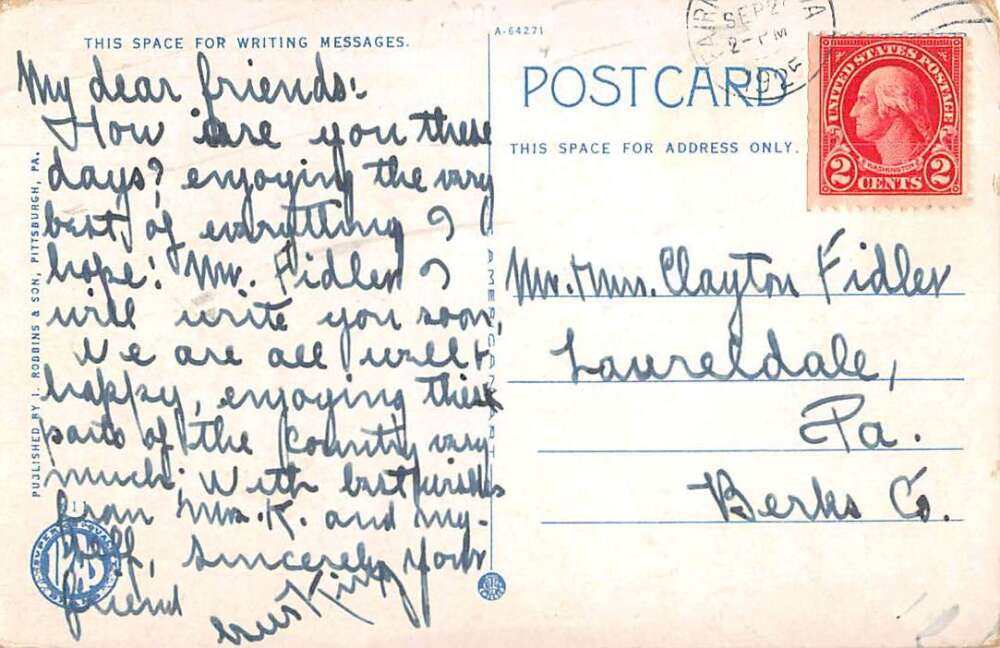 THIS SPACE FOR WRITING MESSAGES.
My dear friends:
How are you these
days? enjoying the very
best of everything I
hope! Mr. Fidler I
will write you soon,
We are all well &
happy, enjoying these
parts of the country very
much; With best wishes
from Mrs. K. and my-
self, sincerely your
friend
King
PUBLISHED BY I. ROBBINS & SON, PITTSBURGH, PA.
A-64271
POST CARD
THIS SPACE FOR ADDRESS ONLY.
SEP 2
2-PM
1925
UNITED STATES POSTAGE
WASHINGTON
2 CENTS 2
Mr. & Mrs. Clayton Fidler
Laureldale,
Pa.
Berks Co.